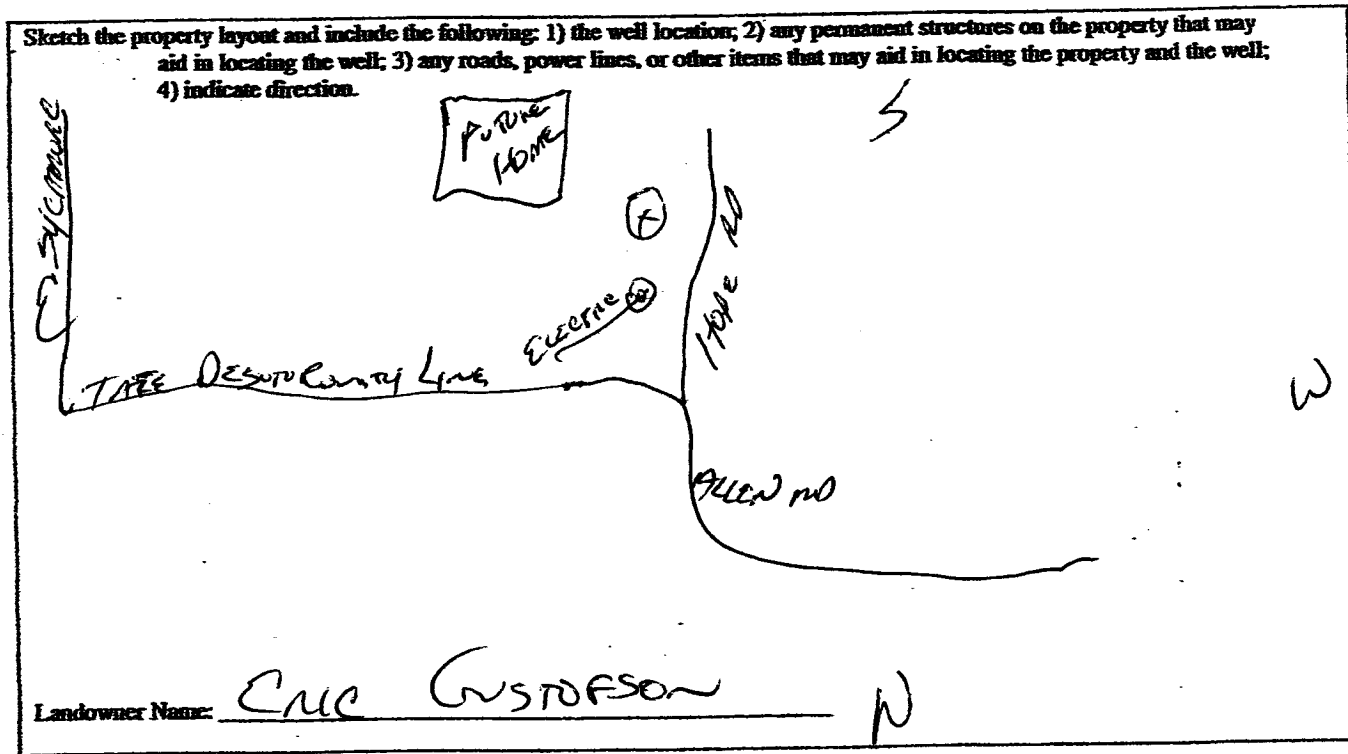 Sketch the property layout and include the following: 1) the well location; 2) any permanent structures on the property that may
aid in locating the well; 3) any roads, power lines, or other items that may aid in locating the property and the well;
4) indicate direction.
S
FUTURE
HOME
E. SYCAMORE
X
HOPE RD
ELECTRIC
TATE DESOTO COUNTY LINE
W
ALLEN RD
Landowner Name: ERIC GUSTOFSON
N